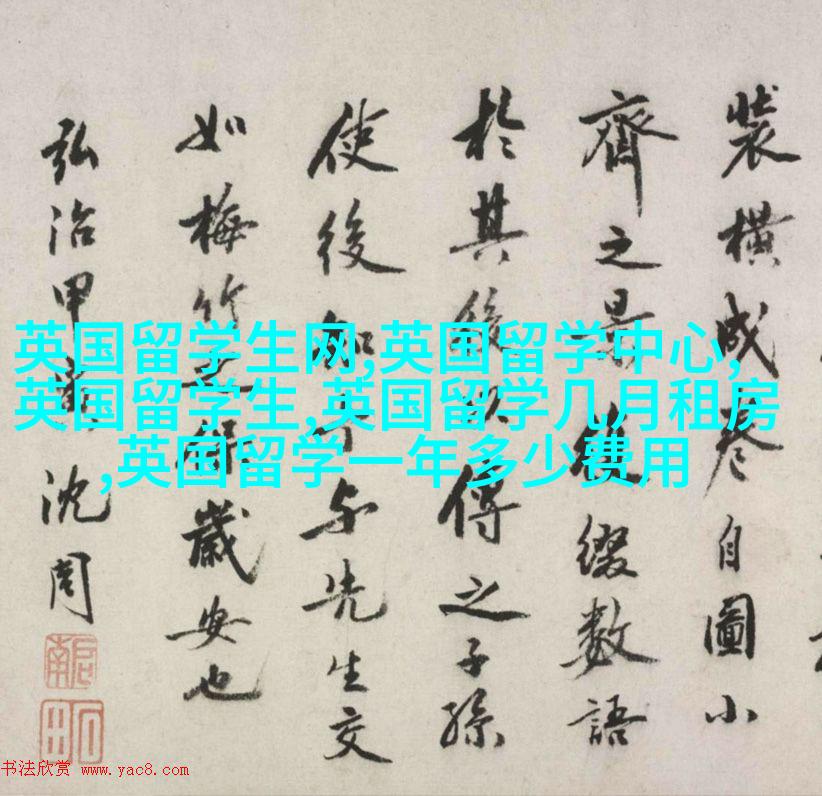 裝橫成卷自圖小
齊之景後綴數語
於其後以傳之子孫
使後知予与先生交
如梅竹之歲安也
弘治甲寅 沈周
啟南
石田
英国留学生网,英国留学中心,
英国留学生,英国留学几月租房
,英国留学一年多少费用
书法欣赏 www.yac8.com